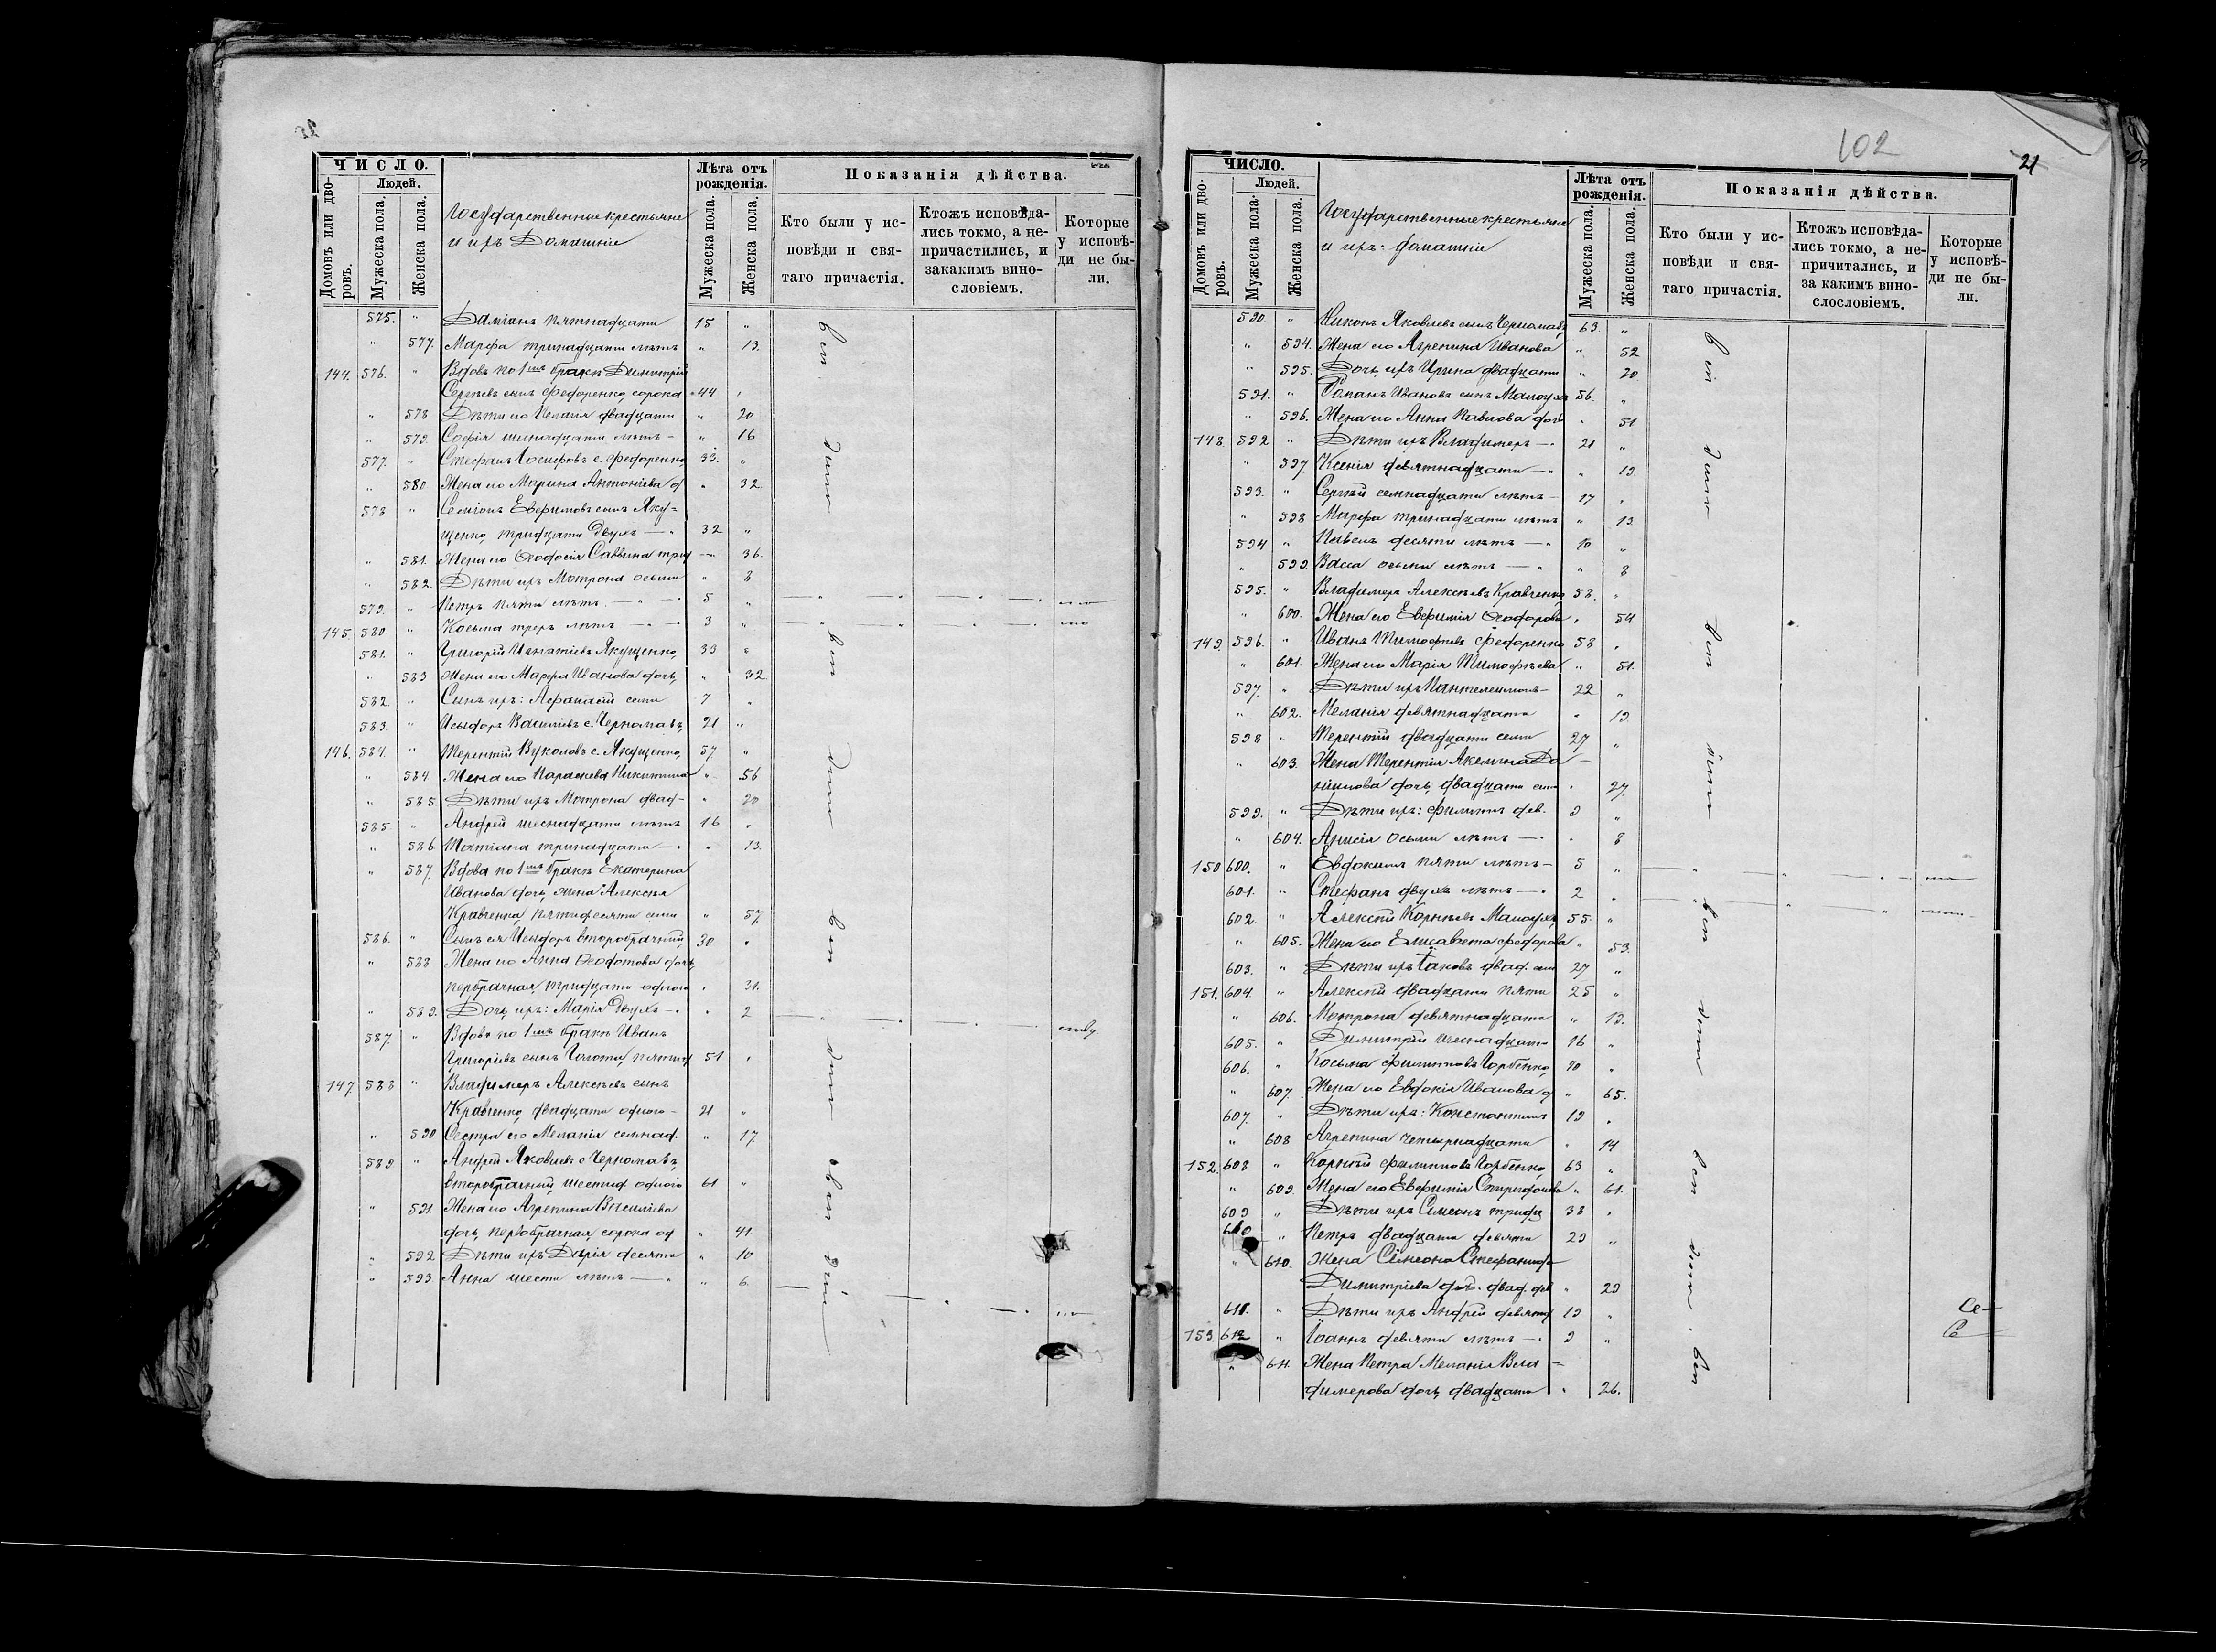 ЧИСЛО.
Людей.
Домовъ или дво-
ровъ.
Мужеска пола.
Женска пола.
Государственные крестьяне
и ихъ Домашніе
Лѣта отъ
рожденія.
Мужеска пола.
Женска пола.
Показанія дѣйства.
Кто были у ис-
повѣди и свя-
таго причастія.
Ктожъ исповѣда-
лись токмо, а не-
причастились, и
закакимъ вино-
словіемъ.
Которые
у исповѣ-
ди не бы-
ли.
575. " Даміанъ пятнадцати 15 "
" 577. Марфа тринадцати лѣтъ " 13.
144. 576. " Вдовъ по 1мъ бракѣ Димитрій
Сергѣевъ сынъ Федоренко, сорока 44
" 578 Дѣти его Пелагія двадцати " 20
" 579. Софія шеснадцати лѣтъ " 16
577. " Стефанъ Іосифовъ с. Федоренко, 33. "
" 580 Жена его Марина Антоніева д " 32
578 " Семіонъ Евфимовъ сынъ Яку-
щенко, тридцати двухъ 32 "
" 581. Жена его Ѳеодосія Саввина трид 36.
" 582. Дѣти ихъ Мотрона осьми " 8
579. " Петръ пяти лѣтъ 5 "
145. 580 " Косьма трехъ лѣтъ 3 "
581. " Григорій Игнатіевъ Якущенко, 33 "
" 583 Жена его Марфа Иванова дочь, " 32
582. " Сынъ ихъ: Афанасій семи 7 "
583. " Исидоръ Василіевъ с. Черномазъ, 21 "
146. 584. " Терентій Вуколовъ с. Якущенко, 57. "
" 584 Жена его Параскева Никитина " 56
" 585. Дѣти ихъ Мотрона двад- " 20
585. " Андрей шеснадцати лѣтъ 16 "
" 586 Татіана тринадцати " 13.
" 587. Вдова по 1мъ бракѣ Екатерина
Иванова дочь, жена Алексѣя
Кравченка, пятидесяти семи " 57.
586. " Сынъ ея Исидоръ второбрачный, 30 "
" 588 Жена его Анна Ѳеодотова дочь,
первобрачная, тридцати одного " 31.
" 589. Дочь ихъ: Марія двухъ " 2
587. " Вдовъ по 1мъ бракѣ Иванъ
Григоріевъ сынъ пятид 51 "
147. 588 " Владимеръ Алексѣевъ сынъ
Кравченко, двадцати одного 21 "
" 590 Сестра его Меланія семнад. " 17.
589 " Андрей Яковлевъ с Черномазъ,
второбрачный, шестид одного 61 "
" 591. Жена его Агрепина Василіева
дочь, первобрачная сорока од " 41.
" 592 Дѣти ихъ Дарія десяти " 10
" 593. Анна шести лѣтъ " 6.
102
21
ЧИСЛО.
Людей.
Домовъ или дво-
ровъ.
Мужеска пола.
Женска пола.
Государственные крестьяне
и ихъ: домашніе
Лѣта отъ
рожденія.
Мужеска пола.
Женска пола.
Показанія дѣйства.
Кто были у ис-
повѣди и свя-
таго причастія.
Ктожъ исповѣда-
лись токмо, а не-
причитались, и
за какимъ вино-
слословіемъ.
Которые
у исповѣ-
ди не бы-
ли.
590. " Никонъ Яковлевъ сынъ Черномазъ 63. "
" 594. Жена его Агрепина Иванова " 52
" 595. Дочь ихъ Ирина двадцати " 20
591. " Романъ Ивановъ сынъ 56. "
" 596. Жена его Анна Павлова дочь " 51
148. 592 " Дѣти ихъ Владимеръ 21 "
" 597. Ксенія девятнадцати " 19.
593. " Сергѣй семнадцати лѣтъ 17 "
" 598 Марфа тринадцати лѣтъ " 13.
594 " Павелъ десяти лѣтъ 10 "
" 599. Васса осьми лѣтъ " 8
595. " Владимеръ Алексѣевъ Кравченко, 58. "
" 600. Жена его Евфимія Ѳеодорова " 54.
149. 596. " Иванъ Тимофѣевъ Федоренко 53 "
" 601. Жена его Марія Тимофѣева " 51.
597. " Дѣти ихъ Пантелеимонъ 22 "
" 602. Меланія девятнадцати " 19.
598 " Терентій двадцати семи 27 "
" 603. Жена Терентія Акелина Да
ніилова дочь, двадцати семи " 27.
599. " Дѣти ихъ: Филиппъ дев. 9 "
" 604. Анисія осьми лѣтъ " 8
150 600. " Евдокимъ пяти лѣтъ 5 "
601. " Стефанъ двухъ лѣтъ 2 "
602. " Алексѣй Корнѣевъ 55. "
" 605. Жена его Елисавета Федорова " 53.
603. " Дѣти ихъ Іаковъ двад. семи 27 "
151. 604. " Алексѣй двадцати пяти 25 "
" 606. Мотрона девятнадцати " 19.
605. " Димитрій шеснадцати 16 "
606. " Косьма Филипповъ Горбенко, 70 "
" 607. Жена его Евдокія Иванова д " 65.
607. " Дѣти ихъ: Константинъ 19 "
" 608 Агрепина четырнадцати " 14
152. 608 " Корнѣй Филипповъ Горбенко, 63 "
" 609. Жена его Евфимія Спиридонова " 61.
609 " Дѣти ихъ Симеонъ тридц 38 "
610 " Петръ двадцати девяти 29 "
" 610. Жена Симеона Стефанида
Димитріева дочь двад. дев " 29
611. " Дѣти ихъ Андрей девятн 19 "
153. 612 " Іоаннъ девяти лѣтъ 9 "
" 611. Жена Петра Меланія Вла
димерова дочь, двадцати " 26.